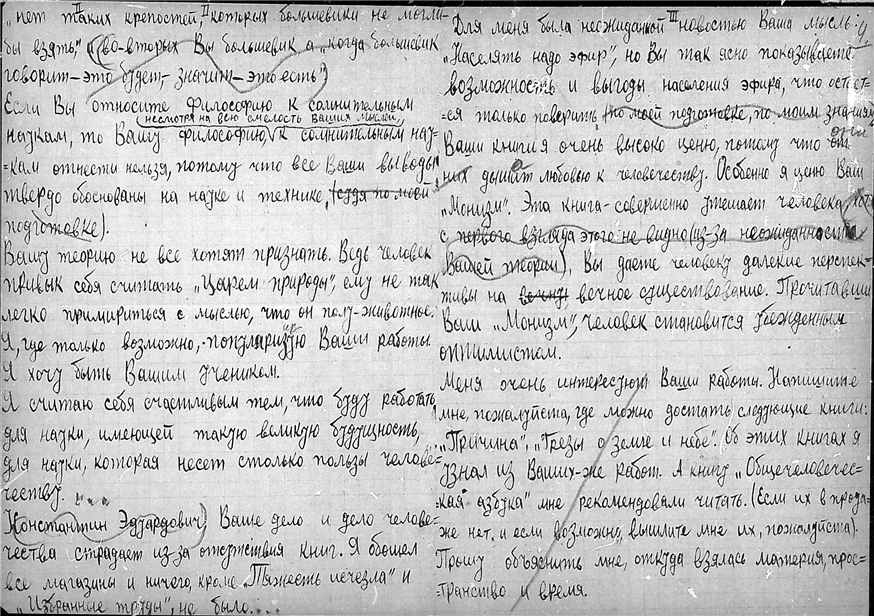 „нет таких крепостей, которых большевики не могли-
бы взять" (во-вторых Вы большевик а „когда большевик
говорит – это будет, – значит – это есть")
Если Вы относите философию к сомнительным
несмотря на всю смелость ваших мыслей,
наукам, то Вашу философию, к сомнительным нау-
=кам отнести нельзя, потому что все Ваши выводы
твердо обоснованы на науке и технике, (судя по моей
подготовке).
Вашу теорию не все хотят признать. Ведь человек
привык себя считать „Царем природы", ему не так
легко примириться с мыслью, что он полу-животное.
Я, где только возможно, популяризирую Ваши работы.
Я хочу быть Вашим учеником.
Я считаю себя счастливым тем, что буду работать
для науки, имеющей такую великую будущность,
для науки, которая несет столько пользы челове-
честву. ...
Константин Эдуардович, Ваше дело и дело челове-
чества страдает из-за отсутствия книг. Я обошел
все магазины и ничего, кроме „Тяжесть исчезла" и
„Избранные труды", не было....
Для меня была неожиданной новостью Ваша мысль:
„Населять надо эфир", но Вы так ясно показываете
возможность и выгоды населения эфира, что остает-
ся только поверить (по моей подготовке, по моим знаниям)
они
Ваши книги я очень высоко ценю, потому что от
них дышат любовью к человечеству. Особенно я ценю Ваш
„Монизм". Эта книга – совершенно утешает человека, хотя
с первого взгляда этого не видно (из-за неожиданности
Вашей теории), Вы даете человеку далекие перспек-
тивы на вечну вечное существование. Прочитавши
Ваш „Монизм", человек становится убежденным
оптимистом.
Меня очень интересуют Ваши работы. Напишите
мне, пожалуйста, где можно достать следующие книги:
„Причина", „Грезы о земле и небе". Об этих книгах я
узнал из Ваших-же работ. А книгу „Общечеловечес-
кая азбука" мне рекомендовали читать. (Если их в прода-
же нет, и если возможно, вышлите мне их, пожалуйста).
Прошу объяснить мне, откуда взялась материя, прос-
=транство и время.